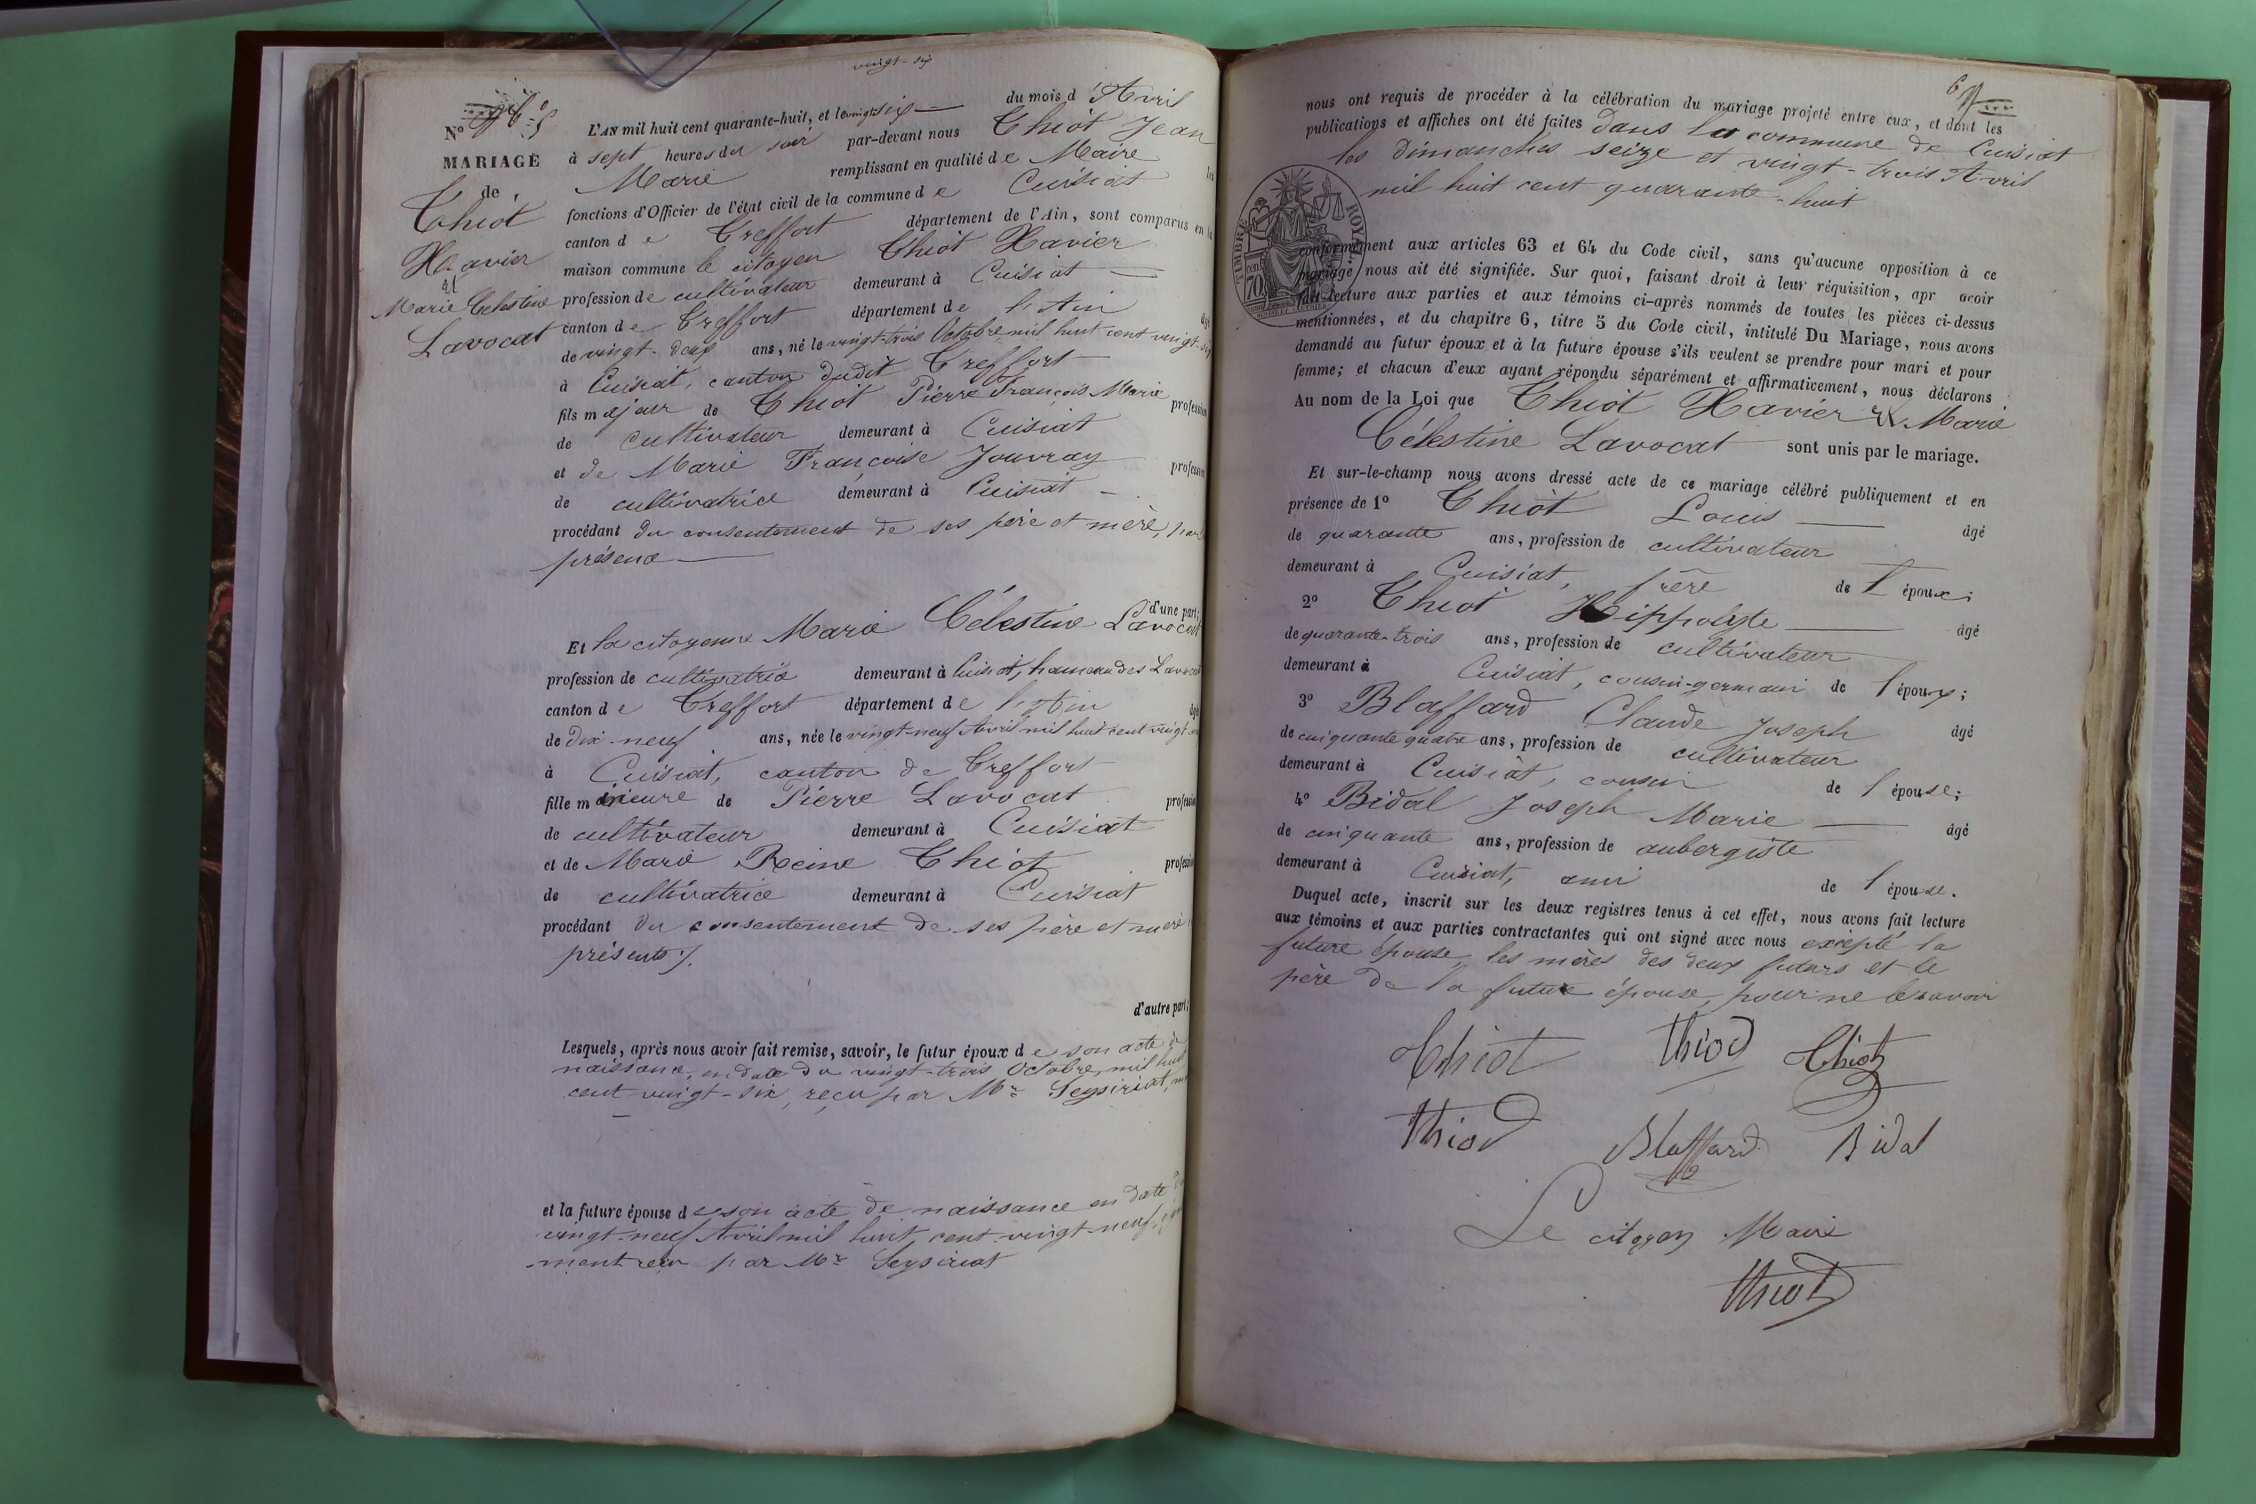 vingt-six
N° 6
MARIAGE
de
Thiot
Xavier
et
Marie Célestine
Lavocat
L'AN mil huit cent quarante-huit, et le vingt six du mois d'Avril
à sept heures du soir par-devant nous Thiot Jean
Marie remplissant en qualité de Maire les
fonctions d'Officier de l'état civil de la commune de Cuisiat
canton de Treffort département de l'Ain, sont comparus en la
maison commune le citoyen Thiot Xavier
profession de cultivateur demeurant à Cuisiat
canton de Treffort département de l'Ain âgé
de vingt-deux ans, né le vingt-trois Octobre mil huit cent vingt-six
à Cuisiat, canton dudit Treffort
fils majeur de Thiot Pierre François Marie profession
de cultivateur demeurant à Cuisiat
et de Marie Françoise Jouvray profession
de cultivatrice demeurant à Cuisiat
procédant du consentement de ses père et mère,
présence
d'une part;
Et la citoyenne Marie Célestine Lavocat
profession de cultivatrice demeurant à Cuisiat, hameau des Lavocat
canton de Treffort département de l'Ain âgée
de dix-neuf ans, née le vingt-neuf Avril mil huit cent vingt
à Cuisiat, canton de Treffort
fille mineure de Pierre Lavocat profession
de cultivateur demeurant à Cuisiat
et de Marie Reine Thiot profession
de cultivatrice demeurant à Cuisiat
procédant du consentement de ses père et mère
présents
d'autre part;
Lesquels, après nous avoir fait remise, savoir, le futur époux de son acte de
naissance, en date du vingt-trois Octobre, mil huit
cent vingt-six, reçu par Mr Seysiriat,
et la future épouse de son acte de naissance en date du
vingt-neuf Avril mil huit cent vingt-neuf,
ment reçu par Mr Seysiriat
nous ont requis de procéder à la célébration du mariage projeté entre eux, et dont les
publications et affiches ont été faites dans la commune de Cuisiat
les dimanches seize et vingt-trois Avril
mil huit cent quarante-huit
TIMBRE ROYAL
70
conformément aux articles 63 et 64 du Code civil, sans qu'aucune opposition à ce
mariage nous ait été signifiée. Sur quoi, faisant droit à leur réquisition, apr avoir
fait lecture aux parties et aux témoins ci-après nommés de toutes les pièces ci-dessus
mentionnées, et du chapitre 6, titre 5 du Code civil, intitulé Du Mariage, nous avons
demandé au futur époux et à la future épouse s'ils veulent se prendre pour mari et pour
femme; et chacun d'eux ayant répondu séparément et affirmativement, nous déclarons
Au nom de la Loi que Thiot Xavier et Marie
Célestine Lavocat sont unis par le mariage.
Et sur-le-champ nous avons dressé acte de ce mariage célébré publiquement et en
présence de 1° Thiot Louis âgé
de quarante ans, profession de cultivateur
demeurant à Cuisiat, frère de l'époux;
2° Thiot Hippolyte âgé
de quarante-trois ans, profession de cultivateur
demeurant à Cuisiat, cousin-germain de l'époux;
3° Blaffard Claude Joseph âgé
de cinquante quatre ans, profession de cultivateur
demeurant à Cuisiat, cousin de l'épouse;
4° Bidal Joseph Marie âgé
de cinquante ans, profession de aubergiste
demeurant à Cuisiat, ami de l'épouse.
Duquel acte, inscrit sur les deux registres tenus à cet effet, nous avons fait lecture
aux témoins et aux parties contractantes qui ont signé avec nous excepté la
future épouse, les mères des deux futurs et le
père de la future épouse, pour ne le savoir
Thiot Thiod Thiot
Thiod Blaffard Bidal
Le citoyen Maire
Thiod